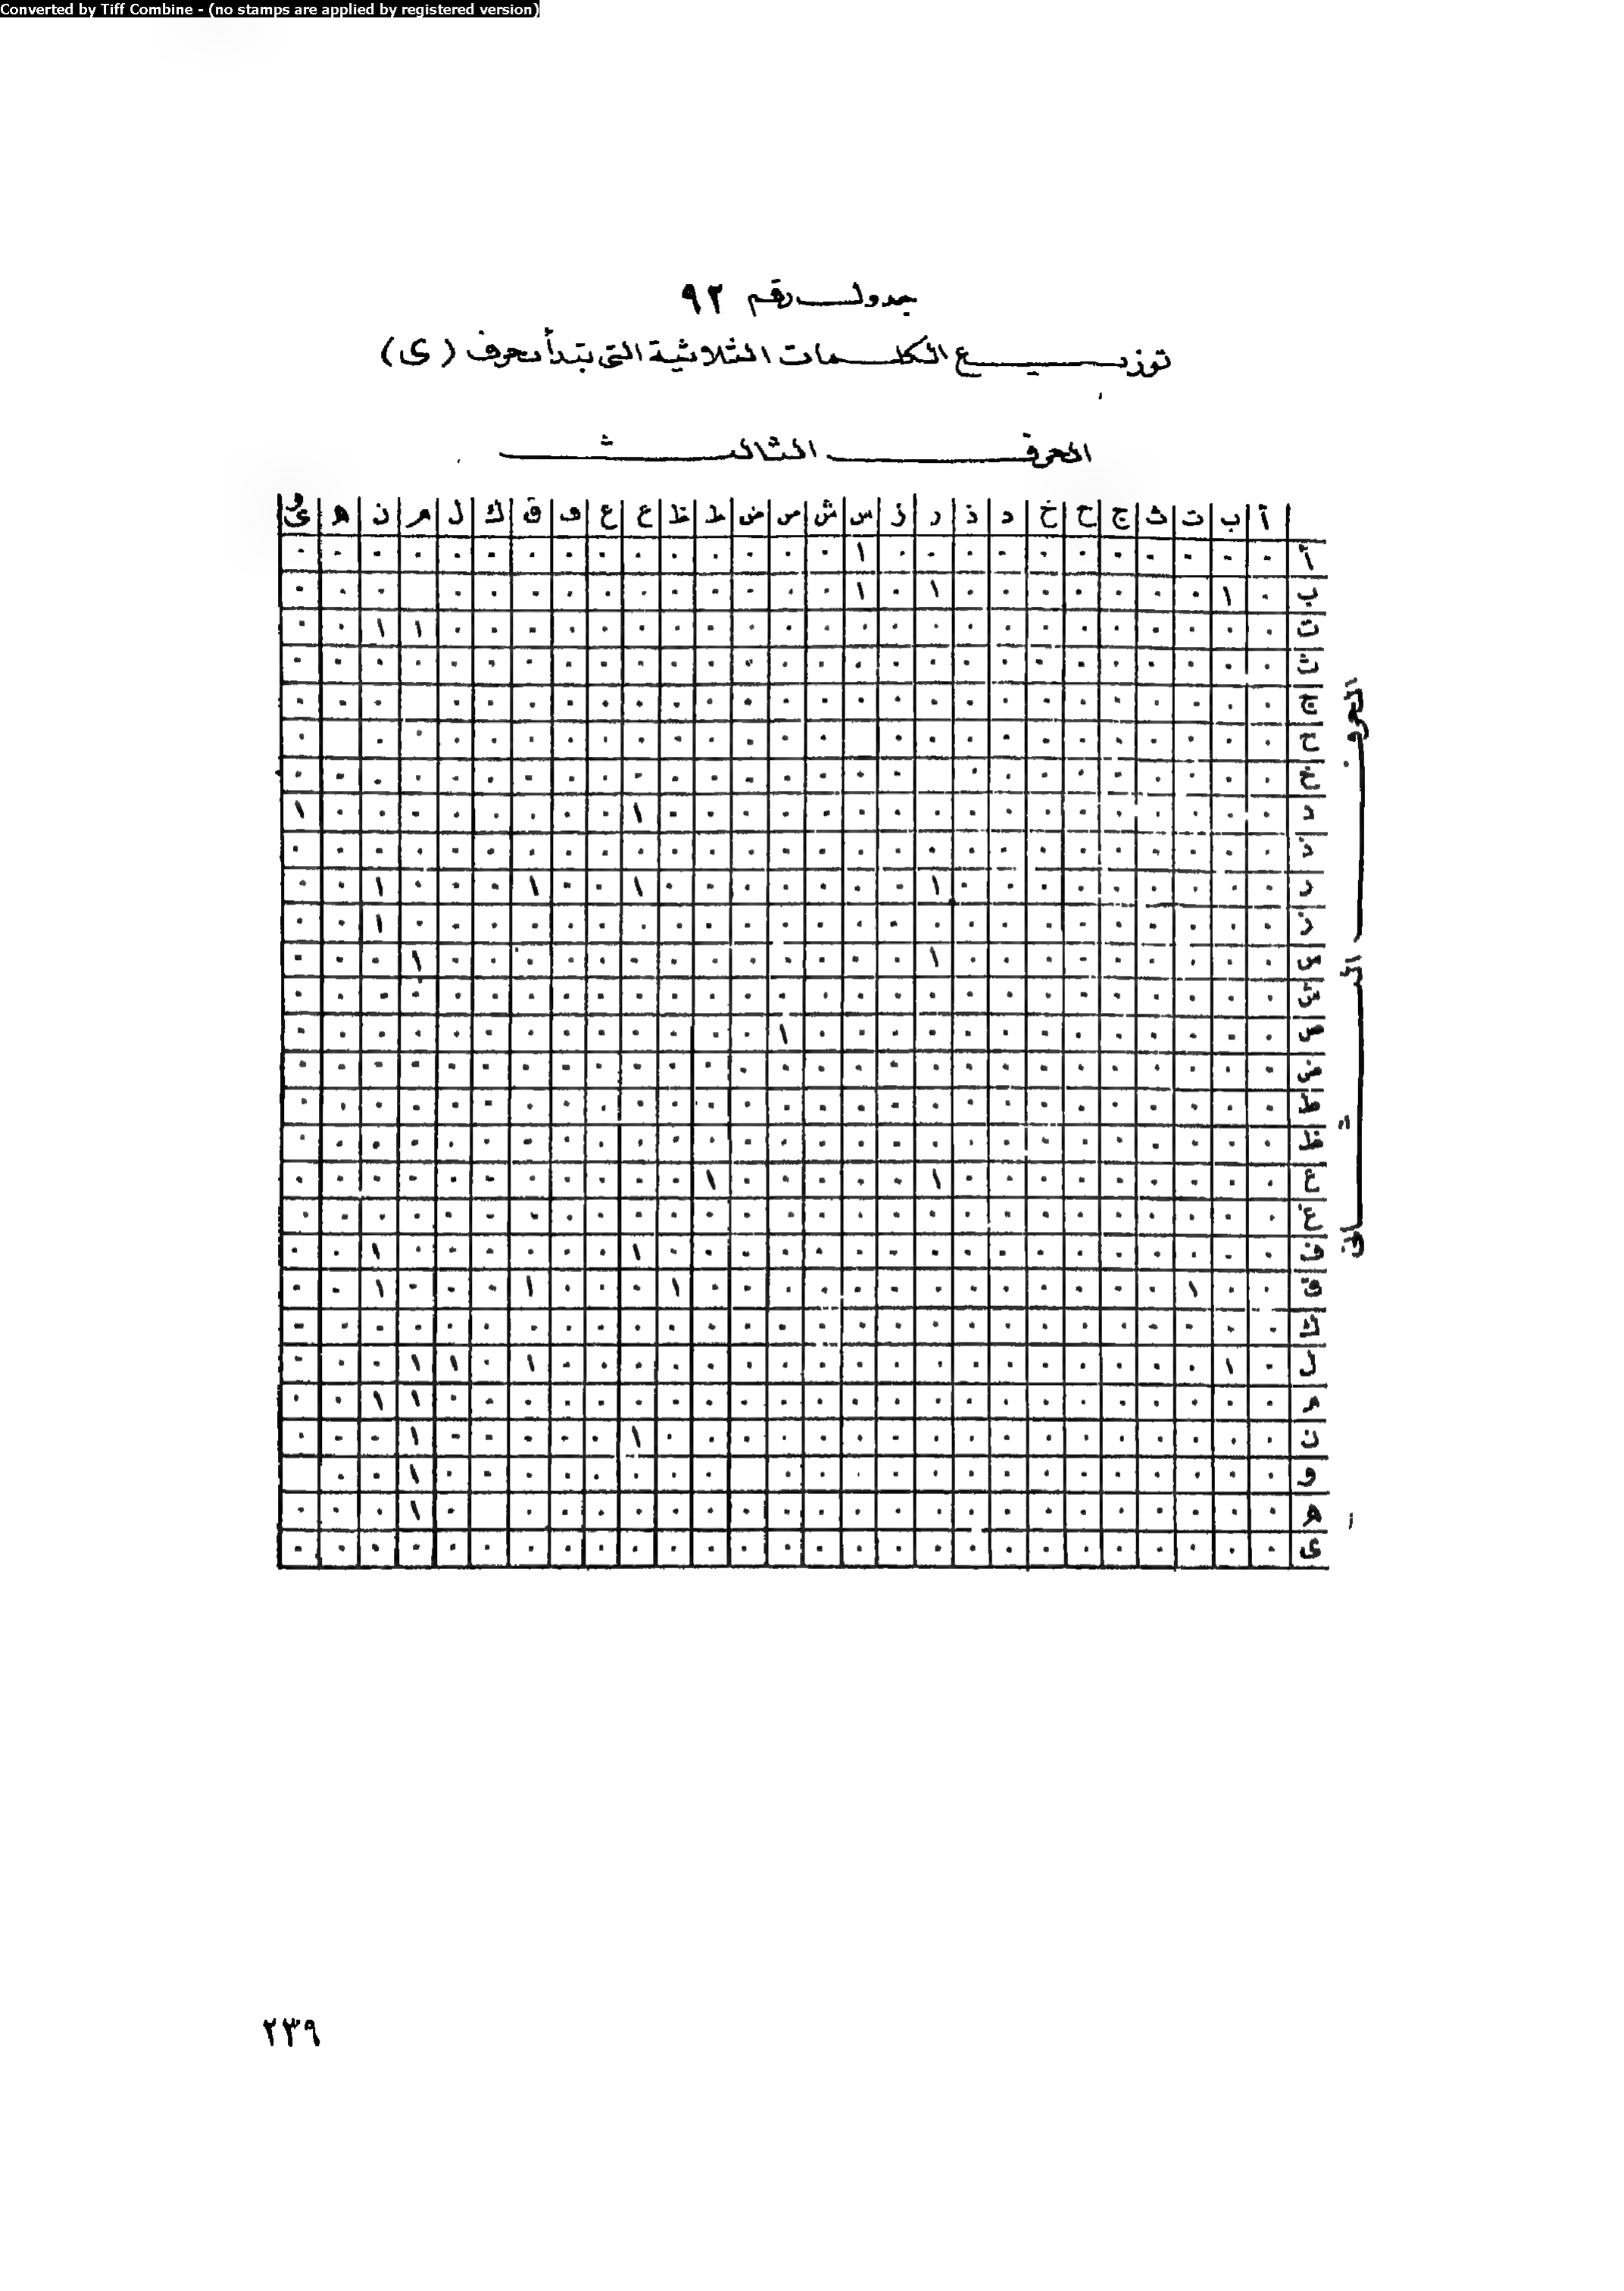 جدول رقم ٩٢
توزيع الكلمات الثلاثية التى تبدأ بحرف (ى)
الحرف الثالث
أ ب ت ث ج ح خ د ذ ر ز س ش ص ض ط ظ ع غ ف ق ك ل م ن ه و ى
أ ٠ ٠ ٠ ٠ ٠ ٠ ٠ ٠ ٠ ٠ ٠ ١ ٠ ٠ ٠ ٠ ٠ ٠ ٠ ٠ ٠ ٠ ٠ ٠ ٠ ٠ ٠
ب ٠ ١ ٠ ٠ ٠ ٠ ٠ ٠ ٠ ١ ٠ ١ ٠ ٠ ٠ ٠ ٠ ٠ ٠ ٠ ٠ ٠ ٠ ٠ ٠ ٠
ت ٠ ٠ ٠ ٠ ٠ ٠ ٠ ٠ ٠ ٠ ٠ ٠ ٠ ٠ ٠ ٠ ٠ ٠ ٠ ٠ ٠ ٠ ٠ ١ ١ ٠ ٠
ث ٠ ٠ ٠ ٠ ٠ ٠ ٠ ٠ ٠ ٠ ٠ ٠ ٠ ٠ ٠ ٠ ٠ ٠ ٠ ٠ ٠ ٠ ٠ ٠ ٠ ٠ ٠
ج ٠ ٠ ٠ ٠ ٠ ٠ ٠ ٠ ٠ ٠ ٠ ٠ ٠ ٠ ٠ ٠ ٠ ٠ ٠ ٠ ٠ ٠ ٠ ٠ ٠ ٠
ح ٠ ٠ ٠ ٠ ٠ ٠ ٠ ٠ ٠ ٠ ٠ ٠ ٠ ٠ ٠ ٠ ٠ ٠ ٠ ٠ ٠ ٠ ٠ ٠ ٠
خ ٠ ٠ ٠ ٠ ٠ ٠ ٠ ٠ ٠ ٠ ٠ ٠ ٠ ٠ ٠ ٠ ٠ ٠ ٠ ٠ ٠ ٠ ٠ ٠ ٠ ٠
د ٠ ٠ ٠ ٠ ٠ ٠ ٠ ٠ ٠ ٠ ٠ ٠ ٠ ٠ ٠ ٠ ٠ ١ ٠ ٠ ٠ ٠ ٠ ٠ ٠ ٠ ١
ذ ٠ ٠ ٠ ٠ ٠ ٠ ٠ ٠ ٠ ٠ ٠ ٠ ٠ ٠ ٠ ٠ ٠ ٠ ٠ ٠ ٠ ٠ ٠ ٠ ٠ ٠ ٠
ر ٠ ٠ ٠ ٠ ٠ ٠ ٠ ٠ ٠ ١ ٠ ٠ ٠ ٠ ٠ ٠ ٠ ١ ٠ ٠ ١ ٠ ٠ ٠ ١ ٠ ٠
ز ٠ ٠ ٠ ٠ ٠ ٠ ٠ ٠ ٠ ٠ ٠ ٠ ٠ ٠ ٠ ٠ ٠ ٠ ٠ ٠ ٠ ٠ ٠ ٠ ١ ٠ ٠
س ٠ ٠ ٠ ٠ ٠ ٠ ٠ ٠ ٠ ١ ٠ ٠ ٠ ٠ ٠ ٠ ٠ ٠ ٠ ٠ ٠ ٠ ٠ ١ ٠ ٠ ٠
ش ٠ ٠ ٠ ٠ ٠ ٠ ٠ ٠ ٠ ٠ ٠ ٠ ٠ ٠ ٠ ٠ ٠ ٠ ٠ ٠ ٠ ٠ ٠ ٠ ٠ ٠ ٠
ص ٠ ٠ ٠ ٠ ٠ ٠ ٠ ٠ ٠ ٠ ٠ ٠ ٠ ١ ٠ ٠ ٠ ٠ ٠ ٠ ٠ ٠ ٠ ٠ ٠ ٠ ٠
ض ٠ ٠ ٠ ٠ ٠ ٠ ٠ ٠ ٠ ٠ ٠ ٠ ٠ ٠ ٠ ٠ ٠ ٠ ٠ ٠ ٠ ٠ ٠ ٠ ٠ ٠ ٠
ط ٠ ٠ ٠ ٠ ٠ ٠ ٠ ٠ ٠ ٠ ٠ ٠ ٠ ٠ ٠ ٠ ٠ ٠ ٠ ٠ ٠ ٠ ٠ ٠ ٠ ٠ ٠
ظ ٠ ٠ ٠ ٠ ٠ ٠ ٠ ٠ ٠ ٠ ٠ ٠ ٠ ٠ ٠ ٠ ٠ ٠ ٠ ٠ ٠ ٠ ٠ ٠ ٠
ع ٠ ٠ ٠ ٠ ٠ ٠ ٠ ٠ ٠ ١ ٠ ٠ ٠ ٠ ٠ ١ ٠ ٠ ٠ ٠ ٠ ٠ ٠ ٠ ٠ ٠ ٠
غ ٠ ٠ ٠ ٠ ٠ ٠ ٠ ٠ ٠ ٠ ٠ ٠ ٠ ٠ ٠ ٠ ٠ ٠ ٠ ٠ ٠ ٠ ٠ ٠ ٠ ٠ ٠
ف ٠ ٠ ٠ ٠ ٠ ٠ ٠ ٠ ٠ ٠ ٠ ٠ ٠ ٠ ٠ ٠ ٠ ١ ٠ ٠ ٠ ٠ ٠ ٠ ١ ٠ ٠
ق ٠ ٠ ١ ٠ ٠ ٠ ٠ ٠ ٠ ٠ ٠ ٠ ٠ ٠ ٠ ٠ ١ ٠ ٠ ٠ ١ ٠ ٠ ٠ ١ ٠ ٠
ك ٠ ٠ ٠ ٠ ٠ ٠ ٠ ٠ ٠ ٠ ٠ ٠ ٠ ٠ ٠ ٠ ٠ ٠ ٠ ٠ ٠ ٠ ٠ ٠ ٠ ٠ ٠
ل ٠ ١ ٠ ٠ ٠ ٠ ٠ ٠ ٠ ٠ ٠ ٠ ٠ ٠ ٠ ٠ ٠ ٠ ٠ ٠ ١ ٠ ١ ١ ٠ ٠ ٠
م ٠ ٠ ٠ ٠ ٠ ٠ ٠ ٠ ٠ ٠ ٠ ٠ ٠ ٠ ٠ ٠ ٠ ٠ ٠ ٠ ٠ ٠ ٠ ١ ١ ٠ ٠
ن ٠ ٠ ٠ ٠ ٠ ٠ ٠ ٠ ٠ ٠ ٠ ٠ ٠ ٠ ٠ ٠ ٠ ١ ٠ ٠ ٠ ٠ ٠ ١ ٠ ٠ ٠
و ٠ ٠ ٠ ٠ ٠ ٠ ٠ ٠ ٠ ٠ ٠ ٠ ٠ ٠ ٠ ٠ ٠ ٠ ٠ ٠ ٠ ٠ ١ ٠ ٠
ه ٠ ٠ ٠ ٠ ٠ ٠ ٠ ٠ ٠ ٠ ٠ ٠ ٠ ٠ ٠ ٠ ٠ ٠ ٠ ٠ ٠ ٠ ١ ٠ ٠ ٠
ى ٠ ٠ ٠ ٠ ٠ ٠ ٠ ٠ ٠ ٠ ٠ ٠ ٠ ٠ ٠ ٠ ٠ ٠ ٠ ٠ ٠ ٠ ٠ ٠ ٠ ٠ ٠
الحرف الثانى
٢٣٩
Converted by Tiff Combine - (no stamps are applied by registered version)